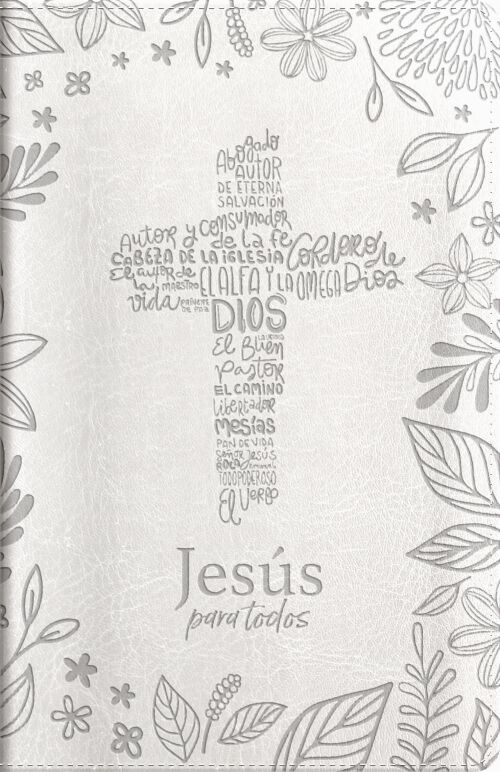 Abogado
AUTOR
DE ETERNA
SALVACIÓN
Autor y consumador
de la fe
CABEZA DE LA IGLESIA
Cordero de
Dios
El autor de
la
vida
MAESTRO
PRÍNCIPE
DE PAZ
EL ALFA Y LA OMEGA
DIOS
LA VERDAD
El Buen
Pastor
EL CAMINO
libertador
Mesías
PAN DE VIDA
Señor Jesús
ROCA Emanuel
TODOPODEROSO
El Verbo
Jesús
para todos